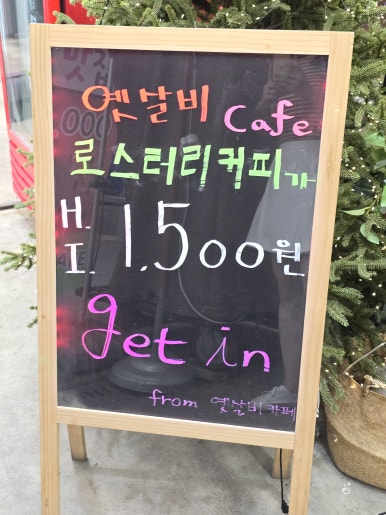 옛살비 Cafe
로스터리커피가
H
I 1.500원
get in
from 옛살비카페